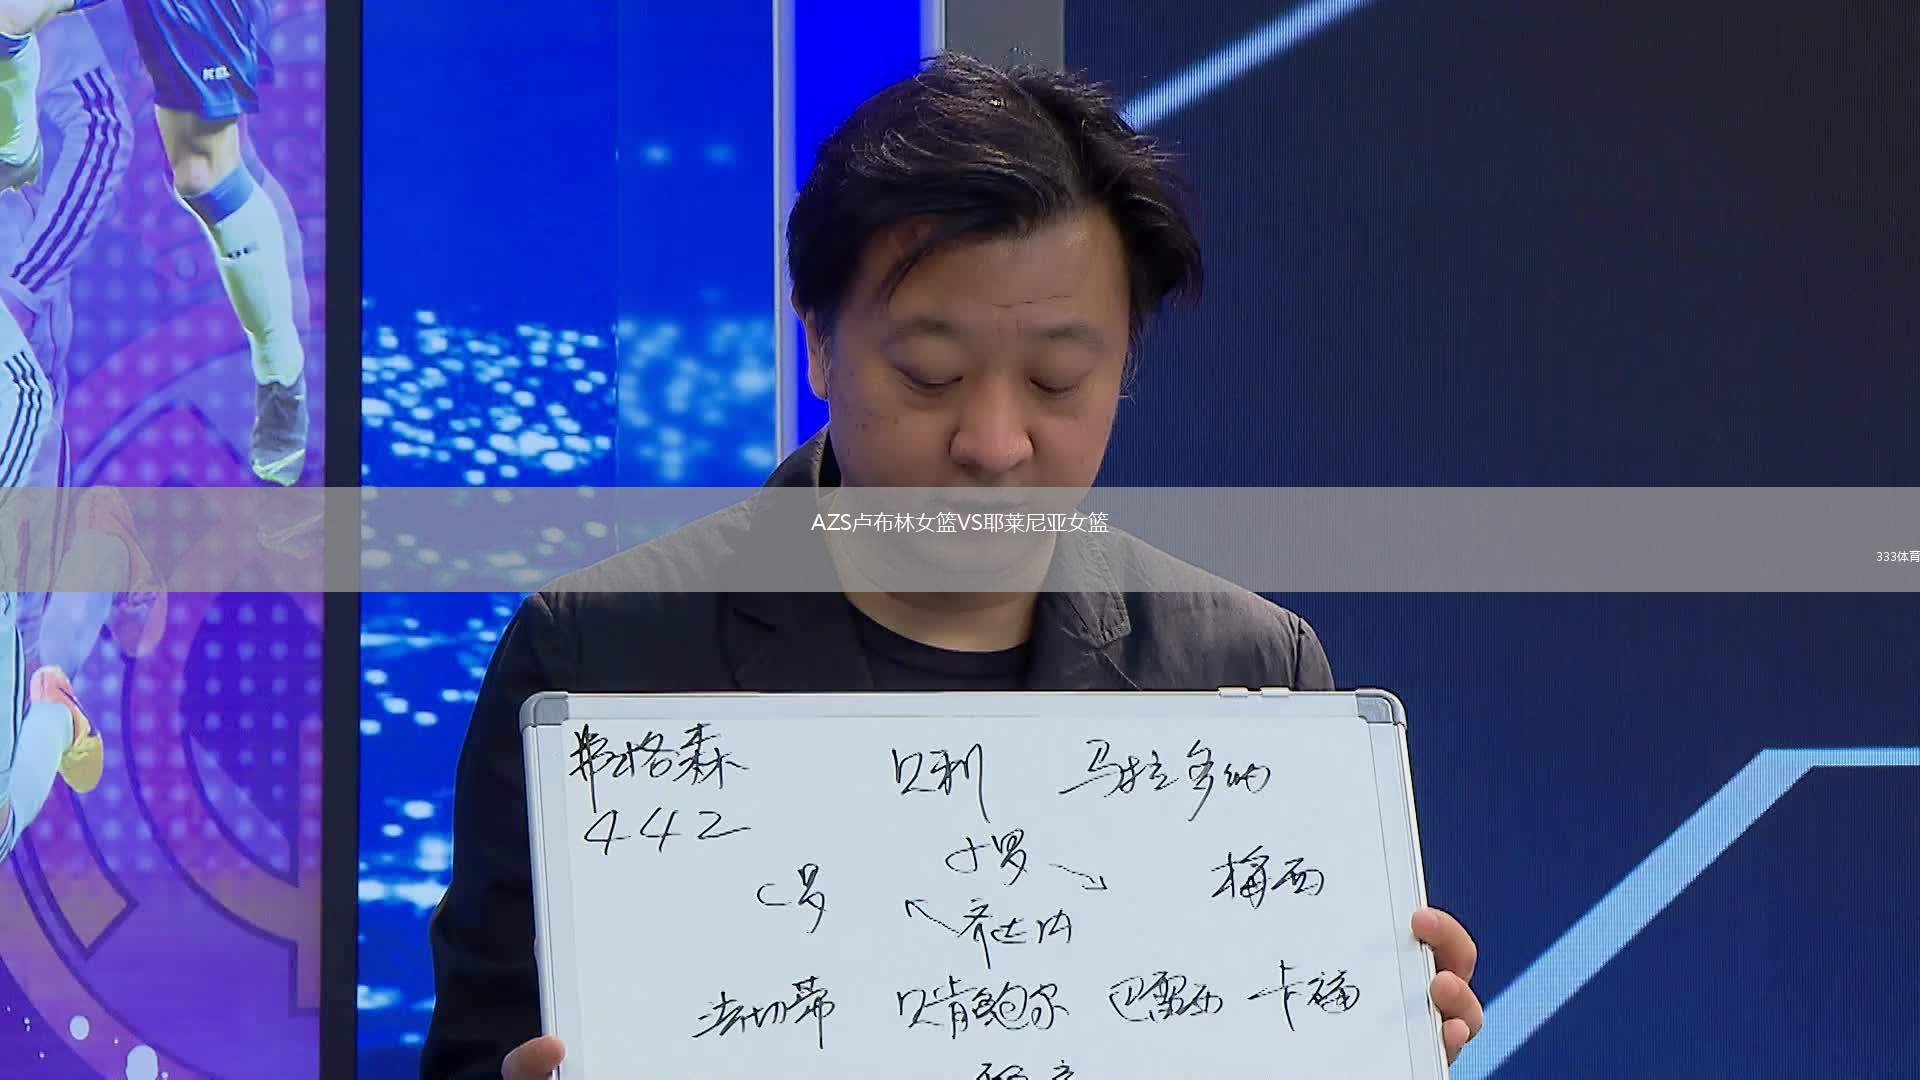 AZS卢布林女篮VS耶莱尼亚女篮
333体育
弗格森 贝利 马拉多纳
442
C罗 小罗 梅西
齐达内
法切蒂 贝肯鲍尔 巴雷西 卡福